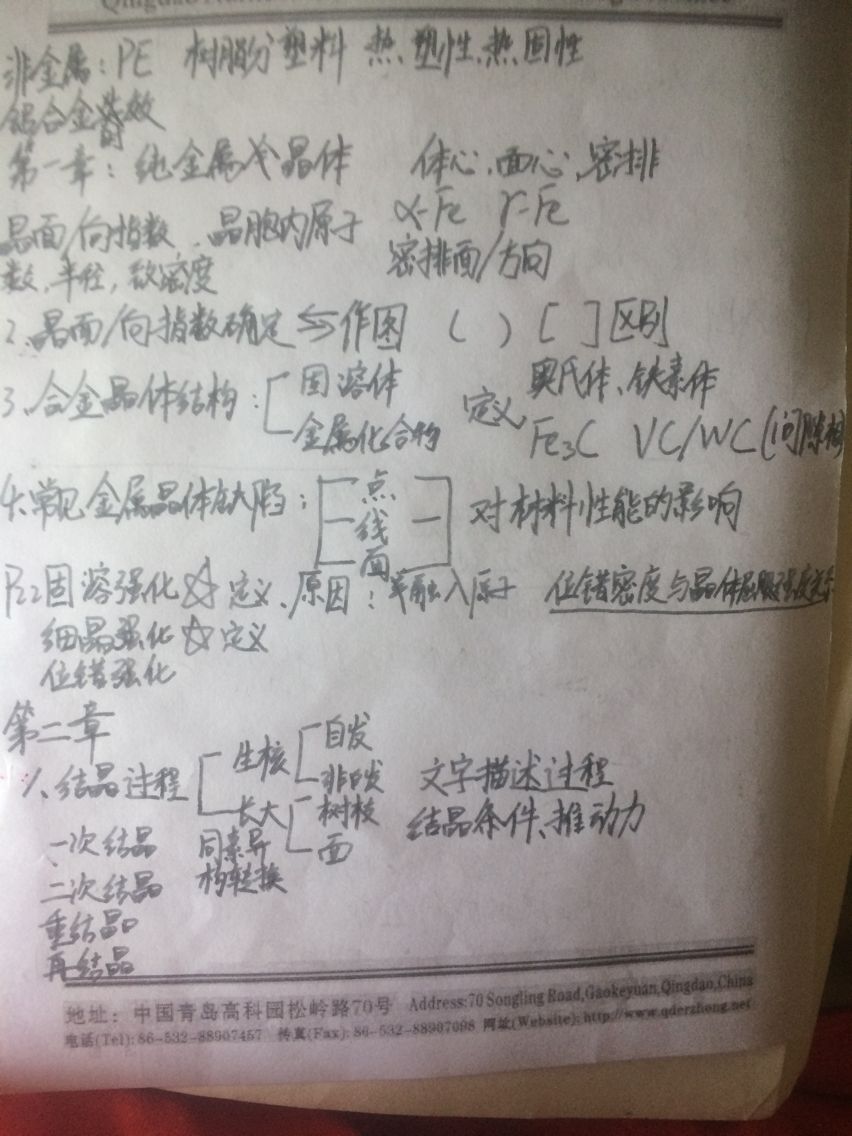 非金属：PE 树脂分塑料 热塑性、热固性
铝合金时效
第一章：纯金属 晶体 体心、面心、密排
α-Fe γ-Fe
晶面/向指数、晶胞内原子
密排面/方向
数、半径，致密度
2、晶面/向指数确定 作图 ( ) [ ] 区别
3、合金晶体结构： 固溶体
金属化合物
定义 奥氏体、铁素体
Fe3C VC/WC (间隙相
4、常见金属晶体缺陷： 点
线
面
对材料性能的影响
P22 固溶强化 ☆ 定义、原因： 融入原子 位错密度与晶体屈服强度关系
细晶强化 ☆ 定义
位错强化
第二章
1、结晶过程 生核 自发
非自发
长大 树枝
面
文字描述过程
结晶条件、推动力
一次结晶 同素异
构转换
二次结晶
重结晶
再结晶
地址：中国青岛高科园松岭路70号 Address:70 Songling Road,Gaokeyuan,Qingdao,China
电话(Tel):86-532-88907457 传真(Fax):86-532-88907098 网址(Website):http://www.qderzhong.net